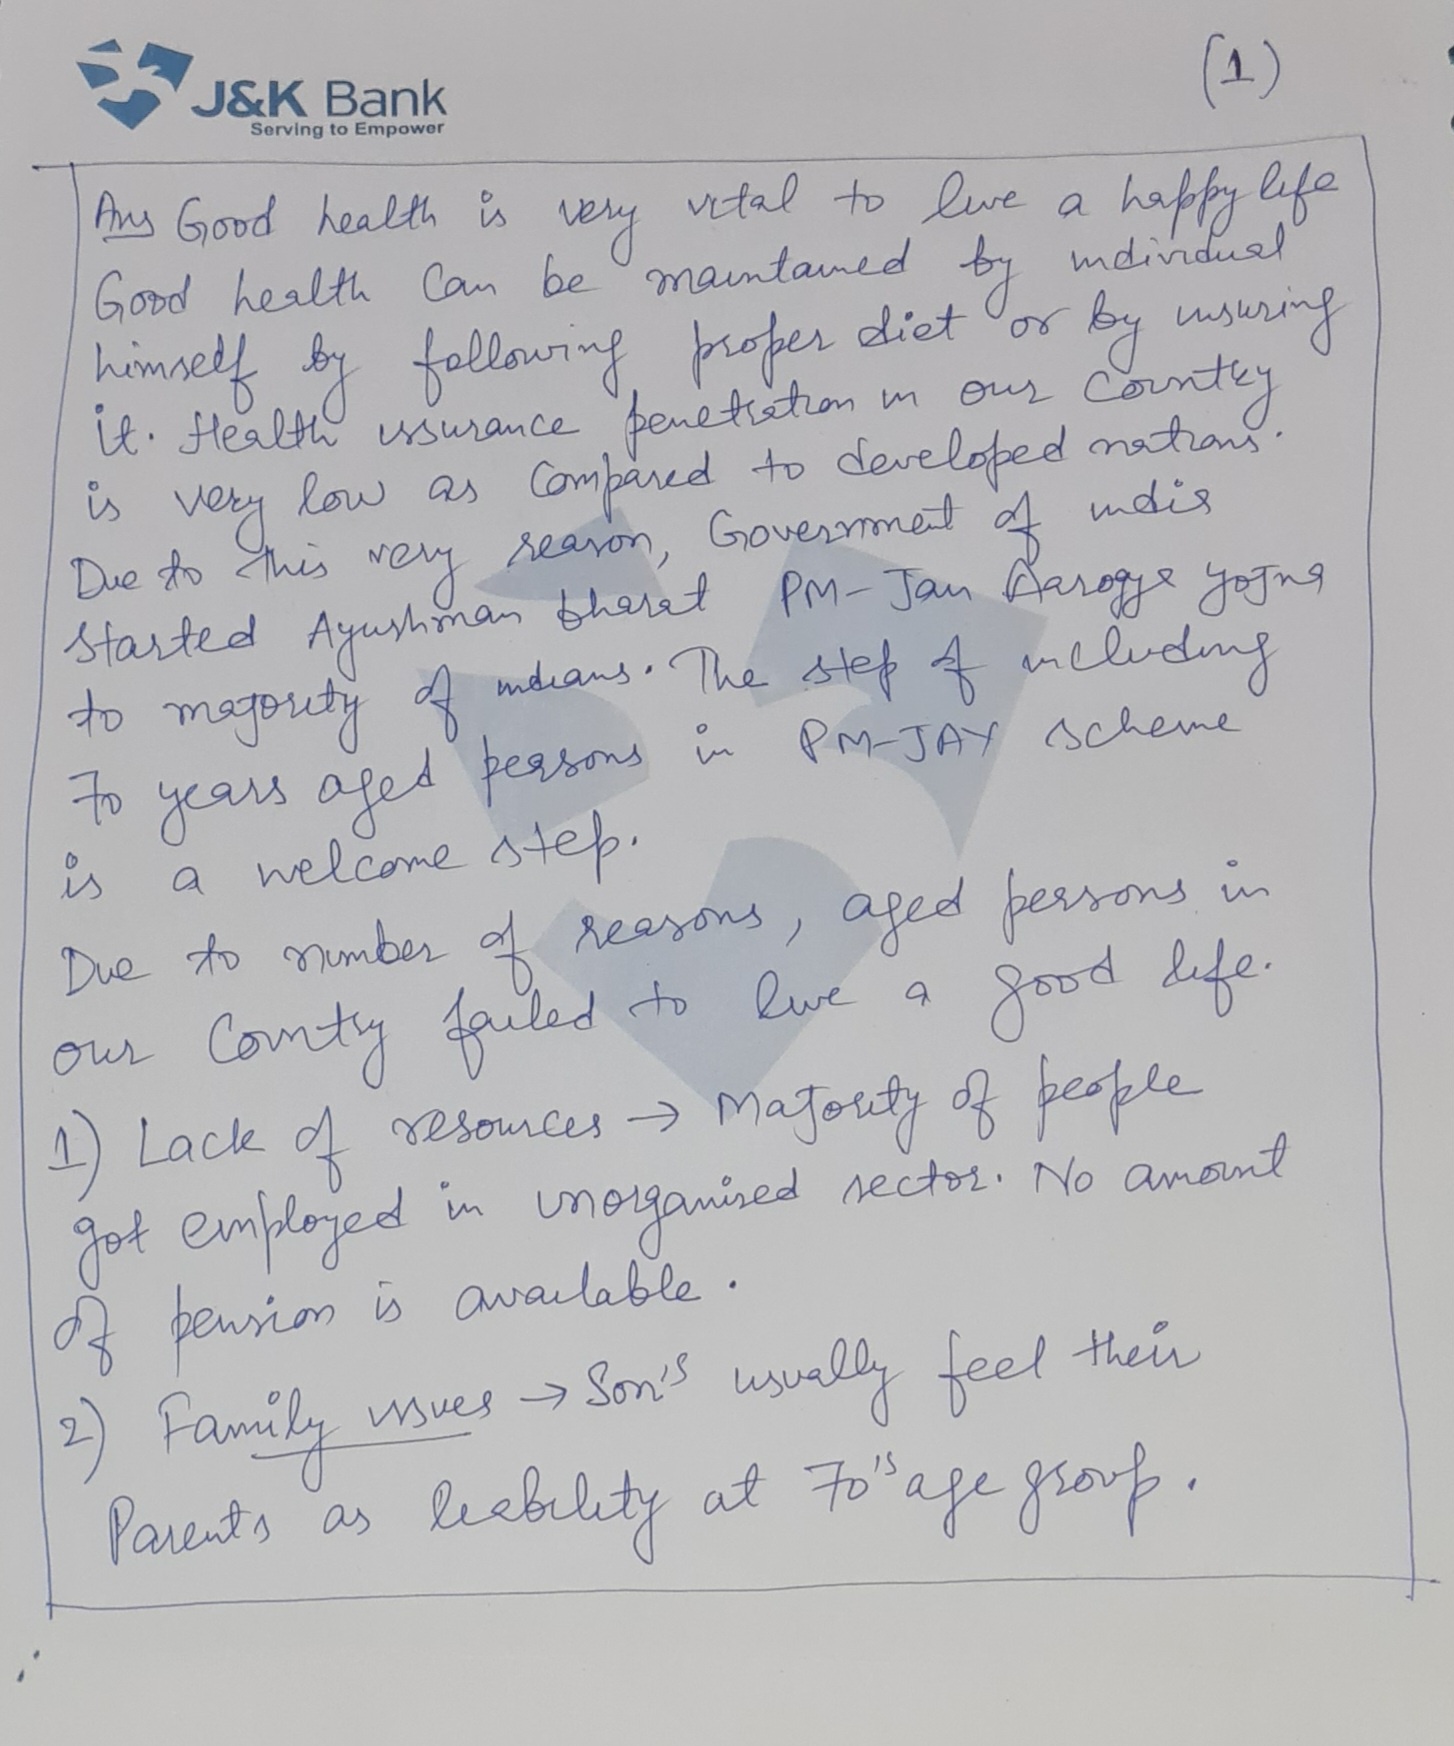 J&K Bank
Serving to Empower
(1)
Ans Good health is very vital to live a happy life
Good health Can be maintained by individual
himself by following proper diet or by insuring
it. Health issurance penetration in our Country
is very low as Compared to developed nations.
Due to this very reason, Government of india
started Ayushman bharat PM-Jan Aarogya yojna
to majority of indians. The step of including
70 years aged persons in PM-JAY scheme
is a welcome step.
Due to number of reasons, aged persons in
our Country failed to live a good life.
1) Lack of resources → Majority of people
got employed in unorganised sector. No amount
of pension is available.
2) Family issues → Son's usually feel their
Parents as liability at 70's age group.